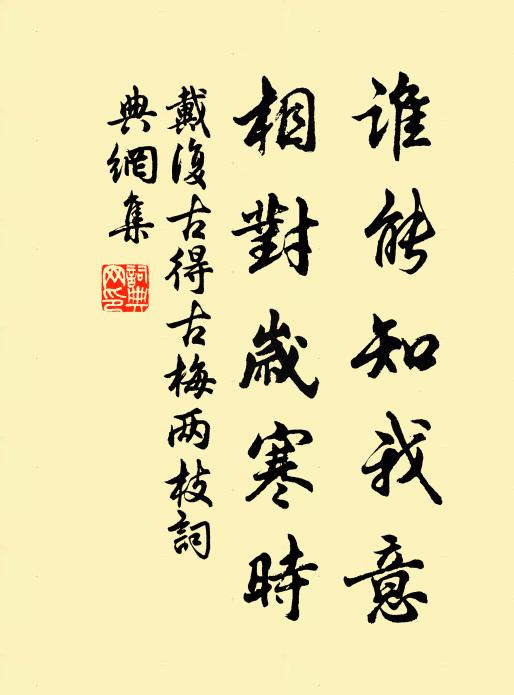 誰能知我意
相對歲寒時
戴復古得古梅两枝詞
典網集
詞典
网印